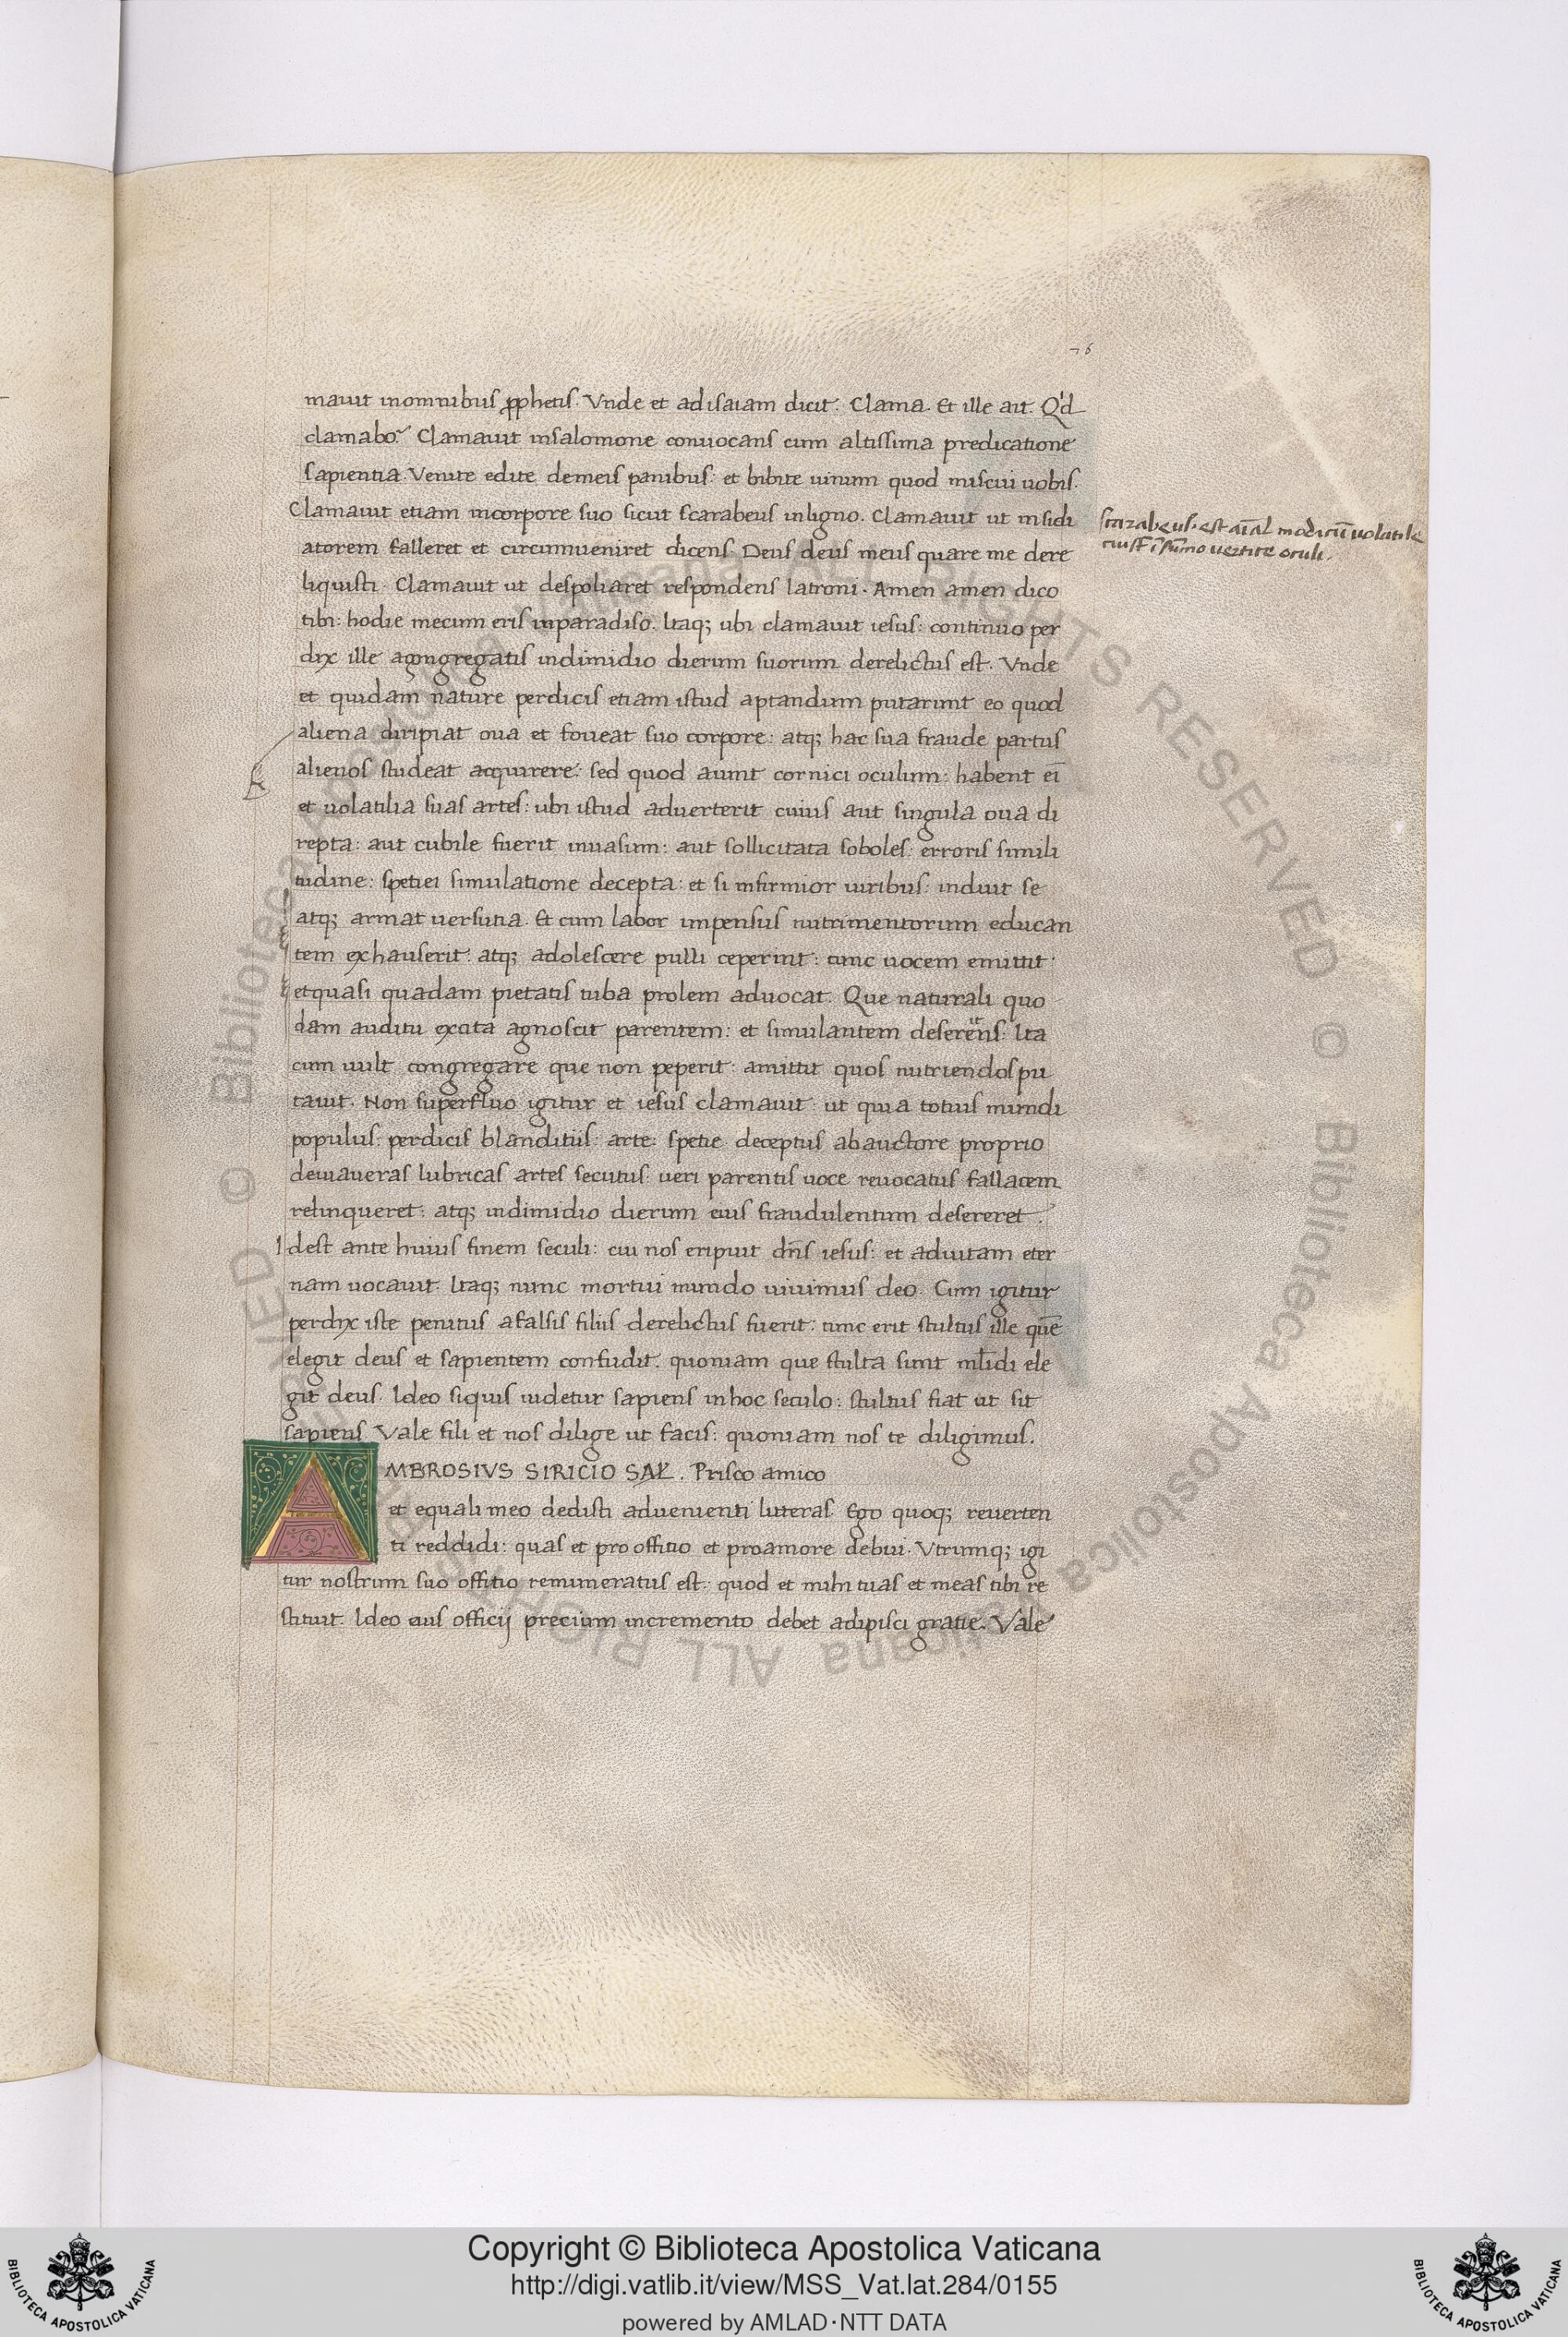 76
mauit inomnibus ꝓphetis. Vnde et adisaiam dicit. Clama. Et ille ait. Qͥd
clamabo? Clamauit insalomone conuocans cum altissima predicatione
sapientia. Venite edite demeis panibus: et bibite uinum quod miscui uobis.
Clamauit etiam incorpore suo sicut scarabeus inligno. Clamauit ut insidi
atorem falleret et circumueniret dicens. Deus deus meus quare me dere
liquisti. Clamauit ut despoliaret respondens latroni. Amen amen dico
tibi: hodie mecum eris inparadiso. Itaq; ubi clamauit iesus: continuo per
dyx ille acongregatis indimidio dierum suorum derelictus est. Vnde
et quidam nature perdicis etiam istud aptandum putarunt eo quod
aliena diripiat oua et foueat suo corpore: atq; hac sua fraude partus
alienos studeat acquirere: sed quod aiunt cornici oculum: habent eī
et uolatilia suas artes: ubi istud aduerterit cuius aut singula oua di
repta: aut cubile fuerit inuasum: aut sollicitata soboles: erroris simili
tudine: spetiei simulatione decepta: et si infirmior uiribus: induit se
atq; armat uersutia. Et cum labor impensus nutrimentorum educan
tem exhauserit: atq; adolescere pulli ceperint: tunc uocem emittit:
etquasi quadam pietatis tuba prolem aduocat. Que naturali quo
dam auditu excita agnoscit parentem: et simulantem deserens. Ita
cum uult congregare que non peperit: amittit quos nutriendos pu
tauit. Non superfluo igitur et iesus clamauit: ut quia totius mundi
populus: perdicis blanditiis: arte: spetie deceptus abauctore proprio
deuiaueras lubricas artes secutus: ueri parentis uoce reuocatus fallacem
relinqueret: atq; indimidio dierum eius fraudulentum desereret.
Idest ante huius finem seculi: cui nos eripuit dn̄s iesus: et aduitam eter
nam uocauit. Itaq; nunc mortui mundo uiuimus deo. Cum igitur
perdyx iste penitus afalsis filiis derelictus fuerit: tunc erit stultus ille quē
elegit deus et sapientem confudit. quoniam que stulta sunt mūdi ele
git deus. Ideo siquis uidetur sapiens inhoc seculo: stultus fiat ut sit
sapiens. Vale fili et nos dilige ut facis: quoniam nos te diligimus.
AMBROSIVS SIRICIO SAŁ. Prisco amico
et equali meo dedisti aduenienti litteras. Ego quoq; reuerten
ti reddidi: quas et pro offitio et proamore debui. Vtrumq; igi
tur nostrum suo offitio remuneratus est: quod et mihi tuas et meas tibi re
stituit. Ideo eius officij precium incremento debet adipisci gratie. Vale
scarabeus. est aīal modicū uolatile
oculi.
Copyright © Biblioteca Apostolica Vaticana
http://digi.vatlib.it/view/MSS_Vat.lat.284/0155
powered by AMLAD·NTT DATA
BIBLIOTECA APOSTOLICA VATICANA
BIBLIOTECA APOSTOLICA VATICANA
© Biblioteca Apostolica Vaticana ALL RIGHTS RESERVED © Biblioteca Apostolica Vaticana ALL RIGHTS RESERVED